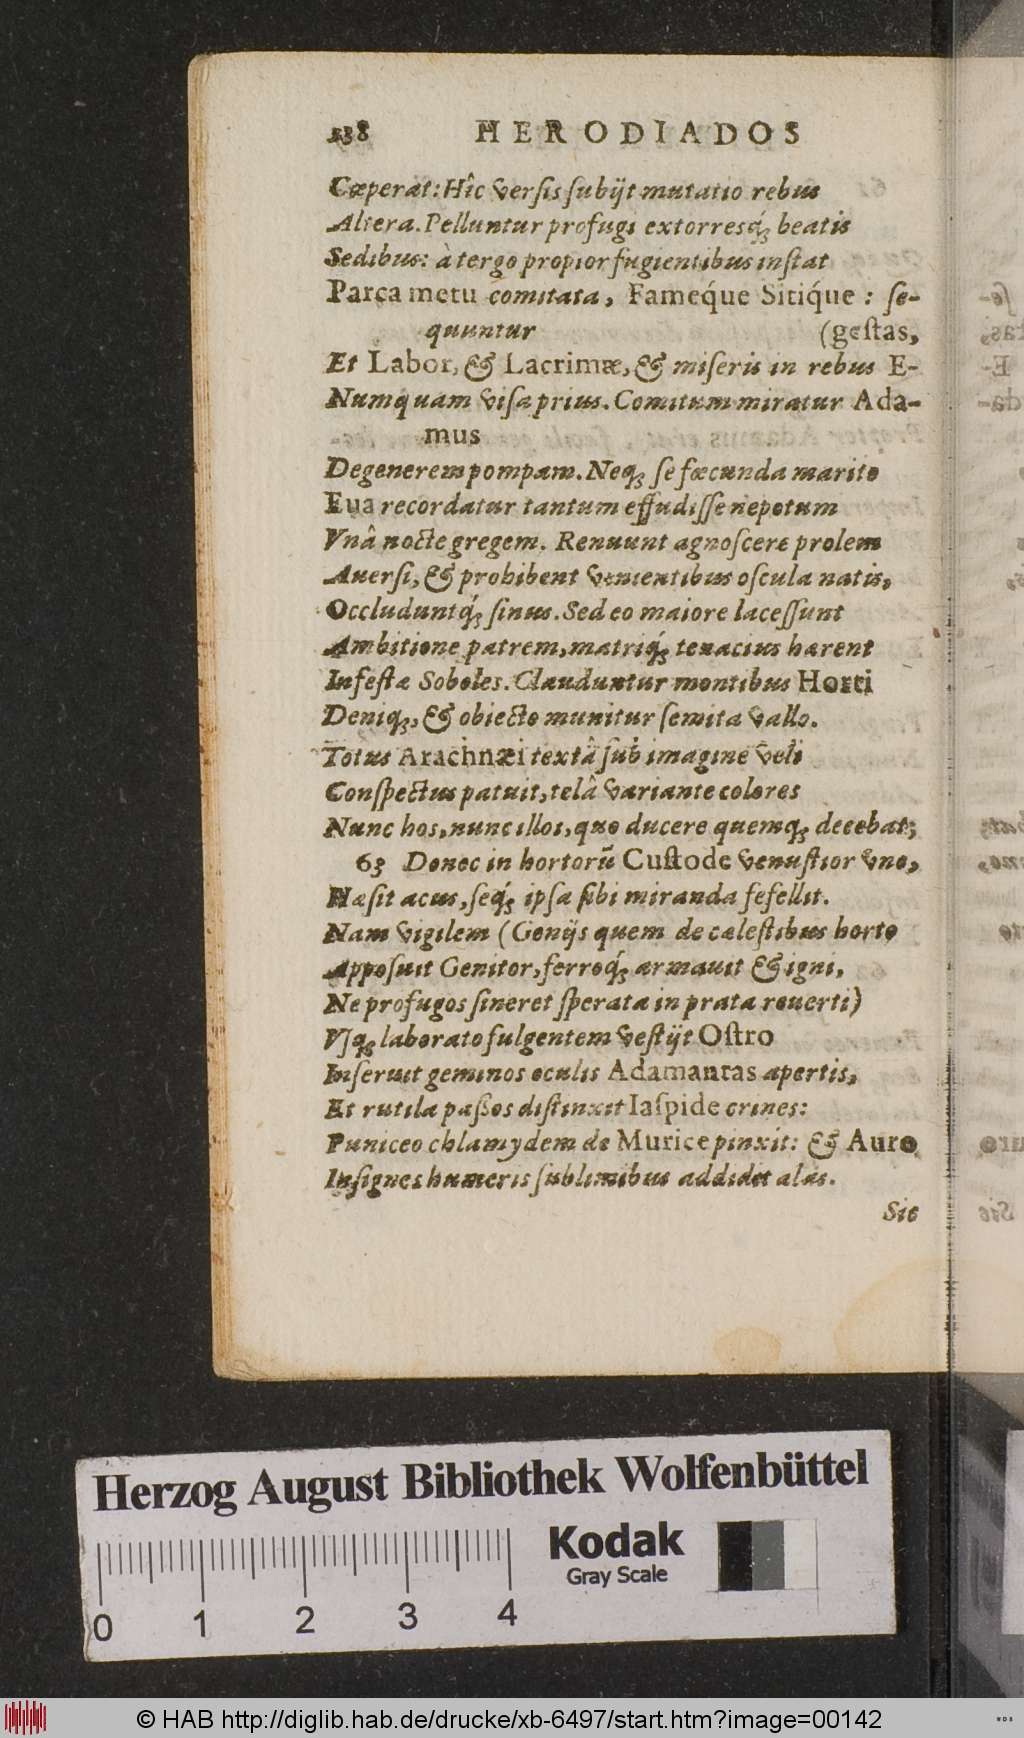 138 HERODIADOS
Cœperat: Hîc versis subijt mutatio rebus
Altera. Pelluntur profugi extorresq́; beatis
Sedibus: à tergo propior fugientibus instat
Parca metu comitata, Fameq́ue Sitiq́ue: se-
quuntur (gestas,
Et Labor, & Lacrimæ, & miseris in rebus E-
Numquam visa prius. Comitum miratur Ada-
mus
Degenerem pompam. Neq; se fœcunda marito
Eua recordatur tantum effudisse nepotum
Vnâ nocte gregem. Renuunt agnoscere prolem
Auersi, & prohibent venientibus oscula natis,
Occluduntq́; sinus. Sed eo maiore lacessunt
Ambitione patrem, matriq́; tenacius hærent
Infestæ Soboles. Clauduntur montibus Horti
Deniq;, & obiecto munitur semita vallo.
Totus Arachnæi textâ sub imagine veli
Conspectus patuit, telâ variante colores
Nunc hos, nunc illos, quo ducere quemq; decebat;
63 Donec in hortorũ Custode venustior vno,
Hæsit acus, seq́; ipsa sibi miranda fefellit.
Nam vigilem (Genijs quem de cælestibus horto
Apposuit Genitor, ferroq́; armauit & igni,
Ne profugos sineret sperata in prata reuerti)
Vsq; laborato fulgentem vestijt Ostro
Inseruit geminos oculis Adamantas apertis,
Et rutila passos distinxit Iaspide crines:
Puniceo chlamydem de Murice pinxit: & Auro
Insignes humeris sublimibus addidit alas.
Sic
Herzog August Bibliothek Wolfenbüttel
Kodak
Gray Scale
0 1 2 3 4
© HAB http://diglib.hab.de/drucke/xb-6497/start.htm?image=00142